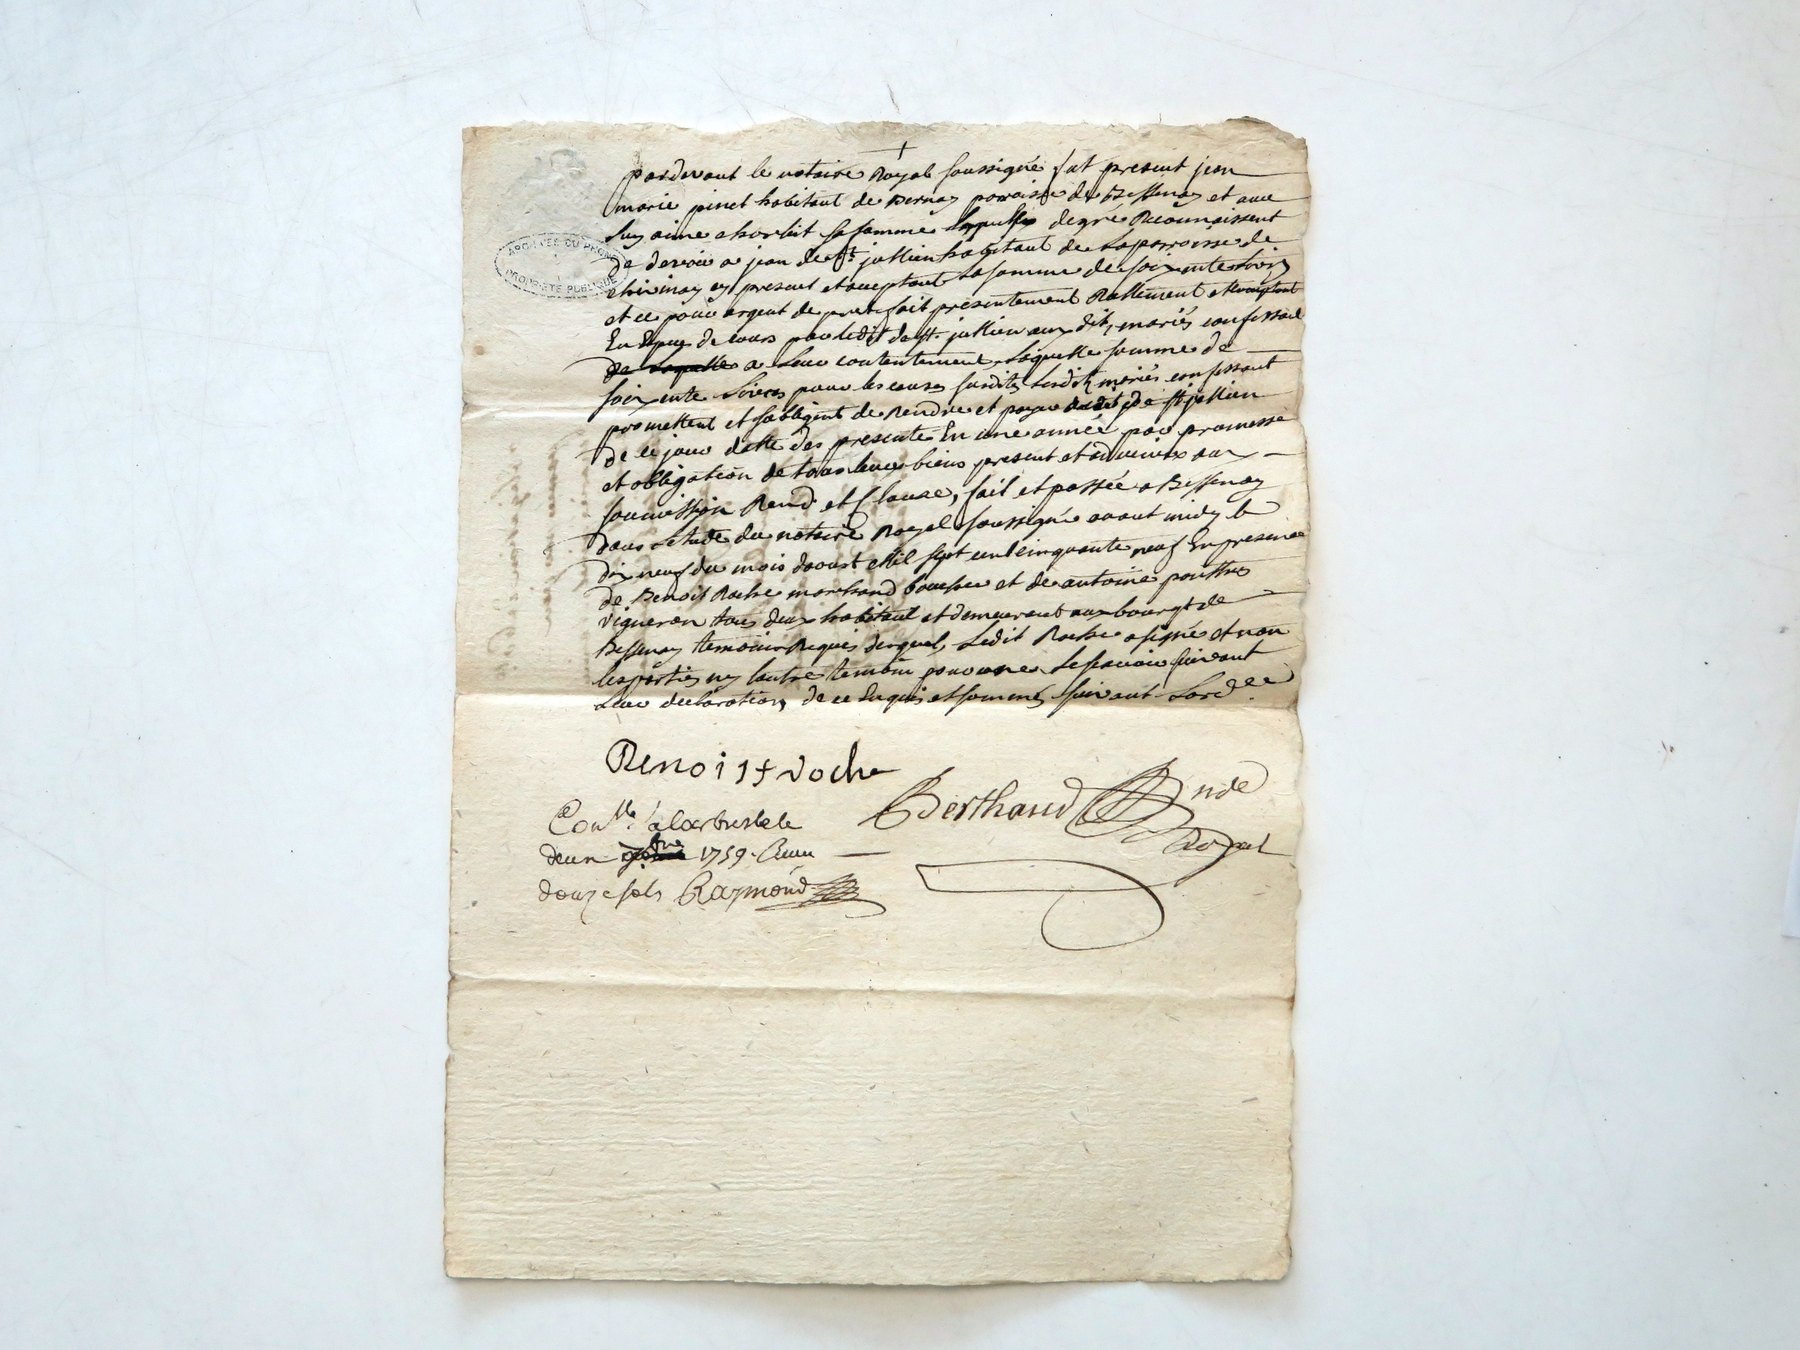 pardevant le notaire Royal soussigné fut present jean
marie pinet habitant de Bernay parroisse de Bessenay et avec
luy aime charbit sa famme lesquelles degré Reconnaissent
de devoir a jean de st jullien habitant de La parroisse de
chivinay cy present et aceptant La somme de soixente Livres
et ce pour argent de pret fait présentement Réellement et comptant
En Espece de cours par Ledit de st jullien aux dits mariés confessant
de laquelle a Leur contentement Laquelle somme de
soixente Livres pour les causes susdites Lesdits mariés confessant
promettent et sobligent de Rendre et payer audit de st jullien
de ce jour datte des presente En une année par promesse
et obligation de tous leurs biens present et advenirs aux
soumission Rend et Clause, fait et passée a Bessenay
dans Létude du notaire Royal soussigné avant midy le
dix neuf du mois daoust Mil sept cent cinquante neuf En presence
de Benoit Roche marchand boucher et de antoine
vigneron tous deux habitant et demeurant aux bourgt de
Bessenay temoins Requis desquels Ledit Roche a signé et non
les parties ny lautre temoin pour ne Le scavoir suivant
Leur declaration de ce Enquis et sommé suivant Lord.ce
Benoist roche
Berthaud nre
Royal
Con.lle à larbresle le
deux 7bre 1759. Reçu
douze sols Raymond
ARCHIVES DU RHONE
PROPRIETE PUBLIQUE